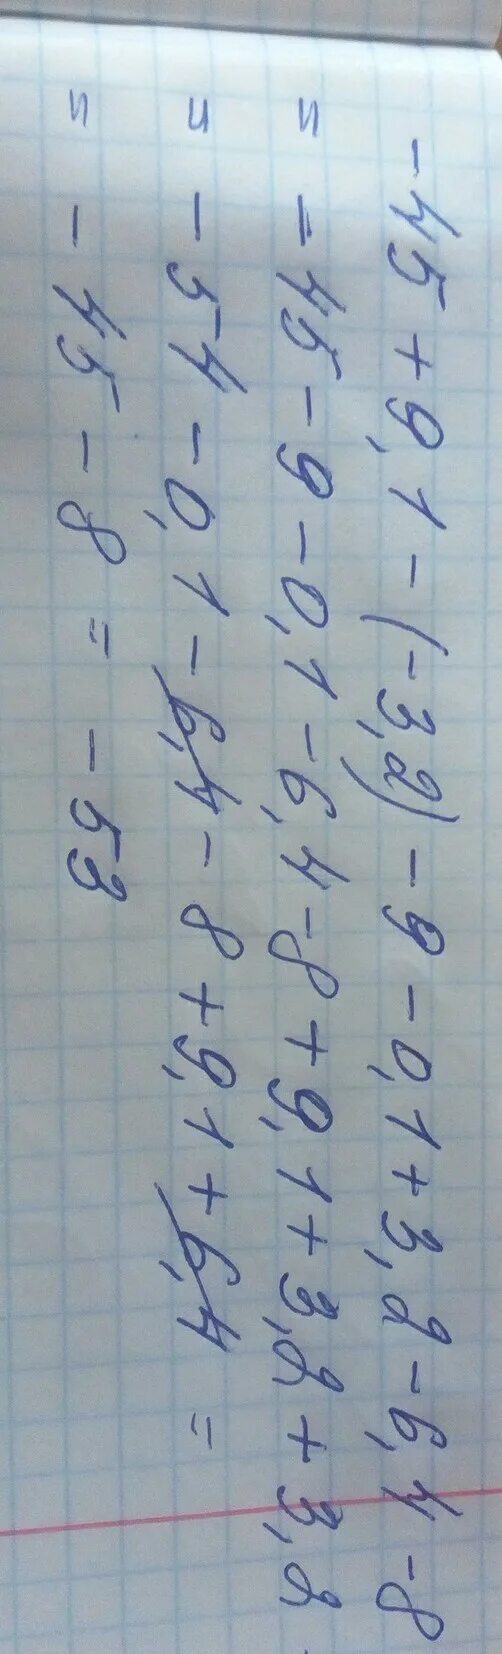 -45+9,1-(-3,2)-9-0,1+3,2-6,4-8
=-45-9-0,1-6,4-8+9,1+3,2+3,2
=-54-0,1-6,4-8+9,1+6,4=
=-45-8=-53